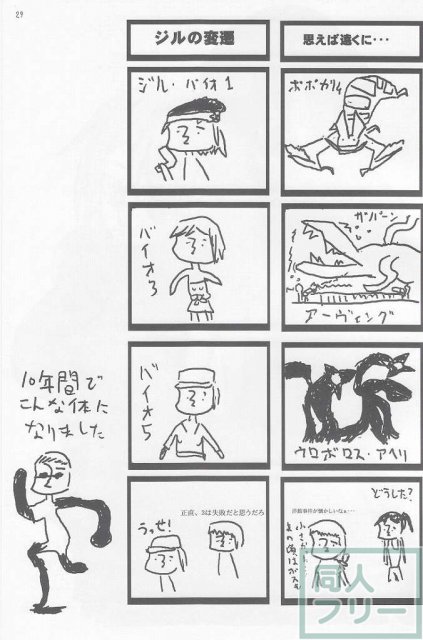 29
思えば遠くに・・・
ポポカリム
ガバーン
アーヴィング
ウロボロス・アヘリ
どうした?
洋館事件が懐かしいなぁ…
ジルの変遷
ジル・バイオ1
バイオ3
バイオ5
正直、3は失敗だと思うだろ
うっせ!
10年間で
こんな体に
なりました
同人
フリー